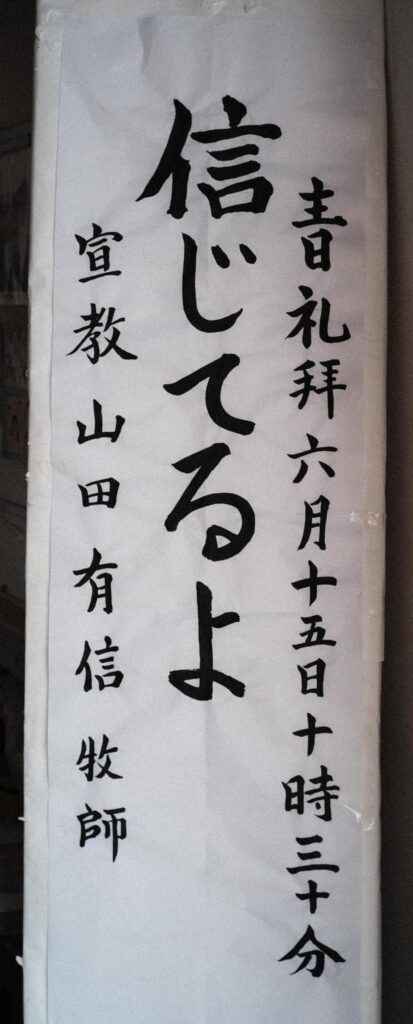 主日礼拝六月十五日十時三十分
信じてるよ
宣教 山田有信 牧師